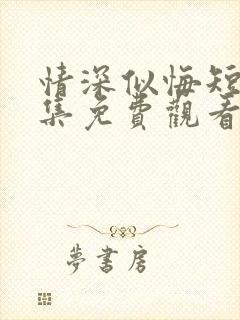 情深似悔短
集免費觀看
夢書房